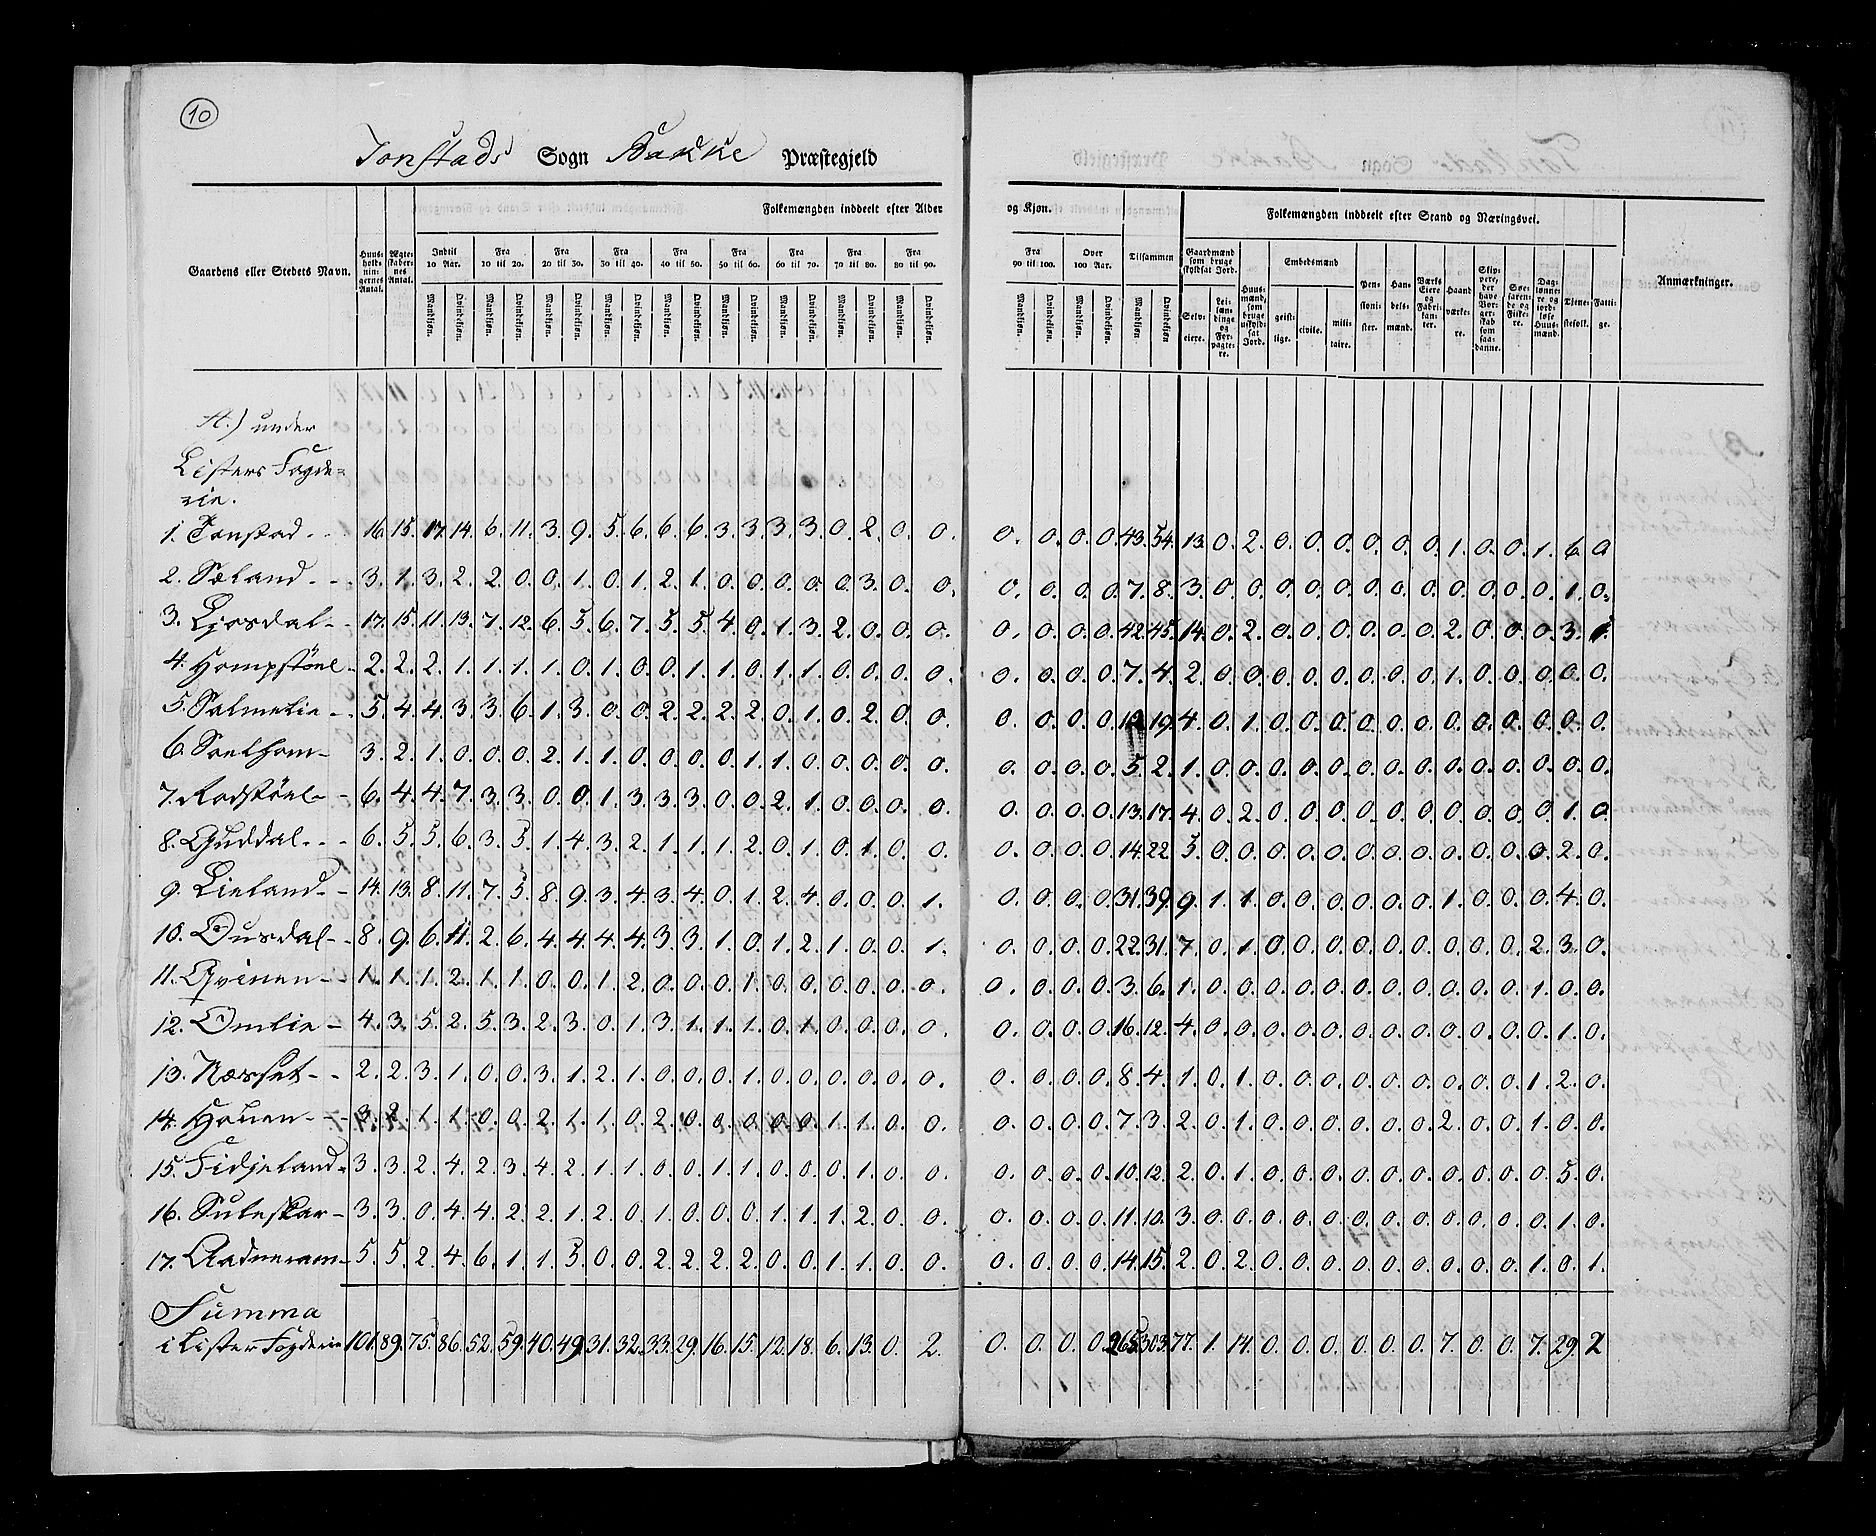 10
Tonstads Sogn Bakke Præstegjeld
Folkemængden inddeelt efter Alder og Kjøn.
Folkemængden inddeelt efter Stand og Næringsvei.
Gaardens eller Stedets Navn.
Huusholdningernes Antal.
Ægteskabernes Antal.
Indtil 10 Aar.
Fra 10 til 20.
Fra 20 til 30.
Fra 30 til 40.
Fra 40 til 50.
Fra 50 til 60.
Fra 60 til 70.
Fra 70 til 80.
Fra 80 til 90.
Fra 90 til 100.
Over 100 Aar.
Tilsammen
Mandkjøn. Qvindekjøn.
Gaardmænd som bruge skyldsat Jord.
Selveiere.
Leilændinge og Forpagtere.
Huusmænd, som bruge uskyldsat Jord.
Embedsmænd
geistlige.
civile.
militaire.
Pensionister.
Handelsmænd.
Værks Eiere og Fabrikanter.
Haandværkere.
Skippere, der have Borgerskab som saadanne.
Søefarende og Fiskere.
Daglønnere og jordløse Huusmænd.
Tjenestefolk.
Fattige.
Anmærkninger.
A.) under
Listers Fogde=
rie.
1. Tonstad - - 16. 15. 17. 14. 6. 11. 3. 9. 5. 6. 6. 6. 3. 3. 3. 3. 0. 2. 0. 0. 0. 0. 0. 0. 43. 54. 13. 0. 2. 0. 0. 0. 0. 0. 0. 1. 0. 0. 1. 6. 0
2. Sæland - - 3. 1. 3. 2. 2. 0. 0. 1. 0. 1. 2. 1. 0. 0. 0. 0. 0. 3. 0. 0. 0. 0. 0. 0. 7. 8. 3. 0. 0. 0. 0. 0. 0. 0. 0. 0. 0. 0. 0. 1. 0.
3. Ljosdal - - 17. 15. 11. 13. 7. 12. 6. 5. 6. 7. 5. 5. 4. 0. 1. 3. 2. 0. 0. 0. 0. 0. 0. 0. 42. 45. 14. 0. 2. 0. 0. 0. 0. 0. 0. 2. 0. 0. 0. 3. 1.
4. Hompstøel - 2. 2. 2. 1. 1. 1. 1. 0. 1. 0. 0. 1. 1. 0. 1. 1. 0. 0. 0. 0. 0. 0. 0. 0. 7. 4. 2. 0. 0. 0. 0. 0. 0. 0. 0. 1. 0. 0. 0. 0. 0.
5. Salmelie - - 5. 4. 4. 3. 3. 6. 1. 3. 0. 0. 2. 2. 2. 2. 0. 1. 0. 2. 0. 0. 0. 0. 0. 0. 12. 19. 4. 0. 1. 0. 0. 0. 0. 0. 0. 0. 0. 0. 0. 0. 0.
6. Soelhom - 3. 2. 1. 0. 0. 0. 2. 1. 1. 0. 0. 0. 0. 1. 1. 0. 0. 0. 0. 0. 0. 0. 0. 0. 5. 2. 1. 0. 0. 0. 0. 0. 0. 0. 0. 0. 0. 0. 0. 0. 0.
7. Rodstøel - - 6. 4. 4. 7. 3. 3. 0. 0. 1. 3. 3. 3. 0. 0. 2. 1. 0. 0. 0. 0. 0. 0. 0. 0. 13. 17. 4. 0. 2. 0. 0. 0. 0. 0. 0. 0. 0. 0. 0. 1. 0
8. Guddal - - - 6. 5. 5. 6. 3. 5. 1. 4. 3. 2. 1. 1. 1. 2. 0. 1. 0. 1. 0. 0. 0. 0. 0. 0. 14. 22. 5. 0. 0. 0. 0. 0. 0. 0. 0. 0. 0. 0. 0. 2. 0.
9. Lieland - - 14. 13. 8. 11. 7. 5. 8. 9. 3. 4. 3. 4. 0. 1. 2. 4. 0. 0. 0. 1. 0. 0. 0. 0. 31. 39. 9. 1. 1. 0. 0. 0. 0. 0. 0. 1. 0. 0. 0. 4. 0.
10. Ousdal - - 8. 9. 6. 11. 2. 6. 4. 4. 4. 4. 3. 3. 1. 0. 1. 2. 1. 0. 0. 1. 0. 0. 0. 0. 22. 31. 7. 0. 1. 0. 0. 0. 0. 0. 0. 0. 0. 0. 2. 3. 0.
11. Qvinen - - 1. 1. 1. 2. 1. 1. 0. 0. 1. 2. 0. 0. 0. 1. 0. 0. 0. 0. 0. 0. 0. 0. 0. 0. 3. 6. 1. 0. 0. 0. 0. 0. 0. 0. 0. 0. 0. 0. 1. 0. 0.
12. Omlie - 4. 3. 5. 2. 5. 3. 2. 3. 0. 1. 3. 1. 1. 1. 0. 1. 0. 0. 0. 0. 0. 0. 0. 0. 16. 12. 4. 0. 0. 0. 0. 0. 0. 0. 0. 0. 0. 0. 0. 1. 0.
13. Næsset - - 2. 2. 3. 1. 0. 0. 3. 1. 2. 1. 0. 0. 0. 1. 0. 0. 0. 0. 0. 0. 0. 0. 0. 0. 8. 4. 1. 0. 1. 0. 0. 0. 0. 0. 0. 0. 0. 0. 1. 2. 0.
14. Houen - - - 3. 2. 1. 1. 0. 0. 2. 1. 1. 0. 2. 0. 0. 0. 0. 0. 1. 1. 0. 0. 0. 0. 0. 0. 7. 3. 2. 0. 1. 0. 0. 0. 0. 0. 0. 2. 0. 0. 1. 0. 0.
15. Fidjeland - 3. 3. 2. 4. 2. 3. 4. 2. 1. 1. 0. 0. 1. 1. 0. 0. 0. 1. 0. 0. 0. 0. 0. 0. 10. 12. 2. 0. 1. 0. 0. 0. 0. 0. 0. 0. 0. 0. 0. 5. 0.
16. Suleskar - 3. 3. 0. 4. 4. 2. 2. 1. 2. 0. 1. 0. 0. 0. 1. 1. 1. 2. 0. 0. 0. 0. 0. 0. 11. 10. 3. 0. 0. 0. 0. 0. 0. 0. 0. 0. 0. 0. 0. 1. 0.
17. Aadneram - 5. 5. 2. 4. 6. 1. 1. 5. 0. 0. 2. 2. 2. 2. 0. 0. 1. 1. 0. 0. 0. 0. 0. 0. 14. 15. 2. 0. 2. 0. 0. 0. 0. 0. 0. 0. 0. 0. 1. 0. 1.
Summa
i Lister Fogderie 101. 89. 75. 86. 52. 59. 40. 49. 31. 32. 33. 29. 16. 15. 12. 18. 6. 13. 0. 2. 0. 0. 0. 0. 265. 303. 77. 1. 14. 0. 0. 0. 0. 0. 0. 7. 0. 0. 7. 29. 2